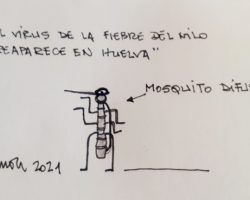 L VÍRUS DE LA FIEBRE DEL NILO
EAPARECE EN HUELVA"
MOSQUITO DIFU
2021